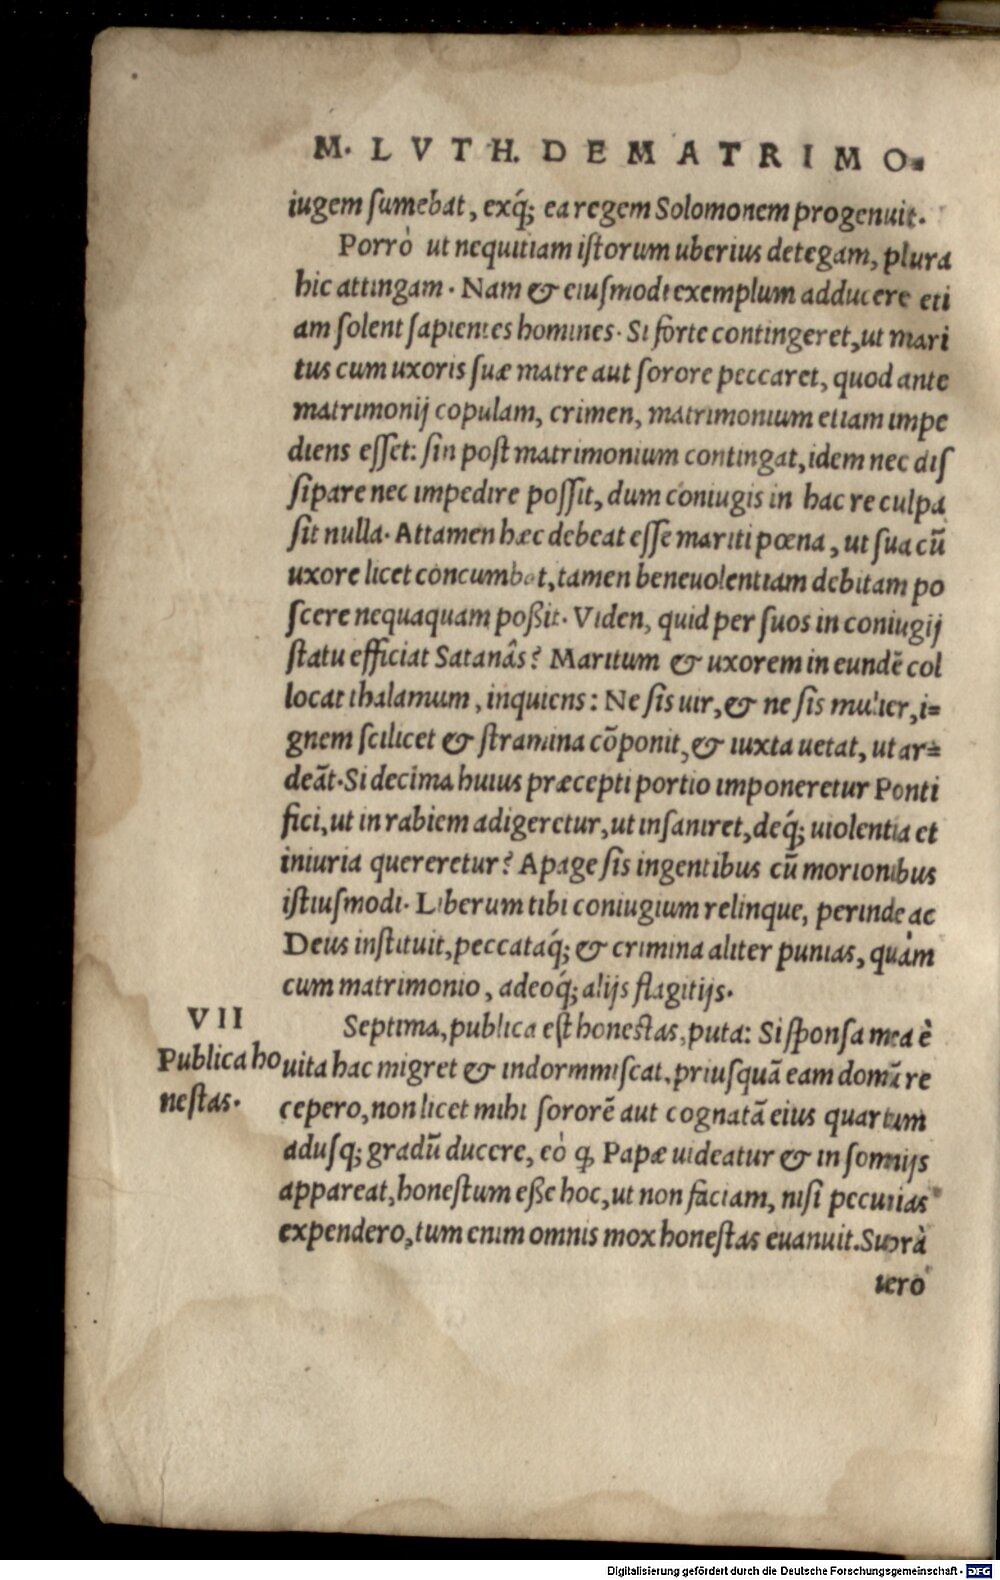 M. LVTH. DE MATRIMO-
iugem ſumebat, exq́; ea regem Solomonem progenuit.
Porrò ut nequitiam iſtorum uberius detegam, plura
hic attingam. Nam & eiuſmodi exemplum adducere eti
am ſolent ſapientes homines. Si forte contingeret, ut mari
tus cum uxoris ſuæ matre aut ſorore peccaret, quod ante
matrimonij copulam, crimen, matrimonium etiam impe
diens eſſet: ſin poſt matrimonium contingat, idem nec diſ
ſipare nec impedire poſſit, dum coniugis in hac re culpa
ſit nulla. Attamen hæc debeat eſſe mariti pœna, ut ſua cū
uxore licet concumbat, tamen beneuolentiam debitam po
ſcere nequaquam poßit. Viden, quid per ſuos in coniugij
ſtatu efficiat Satanâs? Maritum & uxorem in eundē col
locat thalamum, inquiens: Ne ſis uir, & ne ſis mulier, i=
gnem ſcilicet & ſtramina cōponit, & iuxta uetat, ut ar=
deāt. Si decima huius præcepti portio imponeretur Ponti
fici, ut in rabiem adigeretur, ut inſaniret, deq́; uiolentia et
iniuria quereretur? Apage ſis ingentibus cū morionibus
iſtiuſmodi. Liberum tibi coniugium relinque, perinde ac
Deus inſtituit, peccataq́; & crimina aliter punias, quàm
cum matrimonio, adeoq́; alijs flagitijs.
VII
Publica ho
neſtas.
Septima, publica eſt honeſtas, puta: Si ſponſa mea è
uita hac migret & indormmiſcat, priuſquā eam domū re
cepero, non licet mihi ſororē aut cognatā eius quartum
aduſq; gradū ducere, eò ꝙ Papæ uideatur & in ſomnijs
appareat, honeſtum eße hoc, ut non faciam, niſi pecunias
expendero, tum enim omnis mox honeſtas euanuit. Suprà
uero
Digitalisierung gefördert durch die Deutsche Forschungsgemeinschaft - DFG